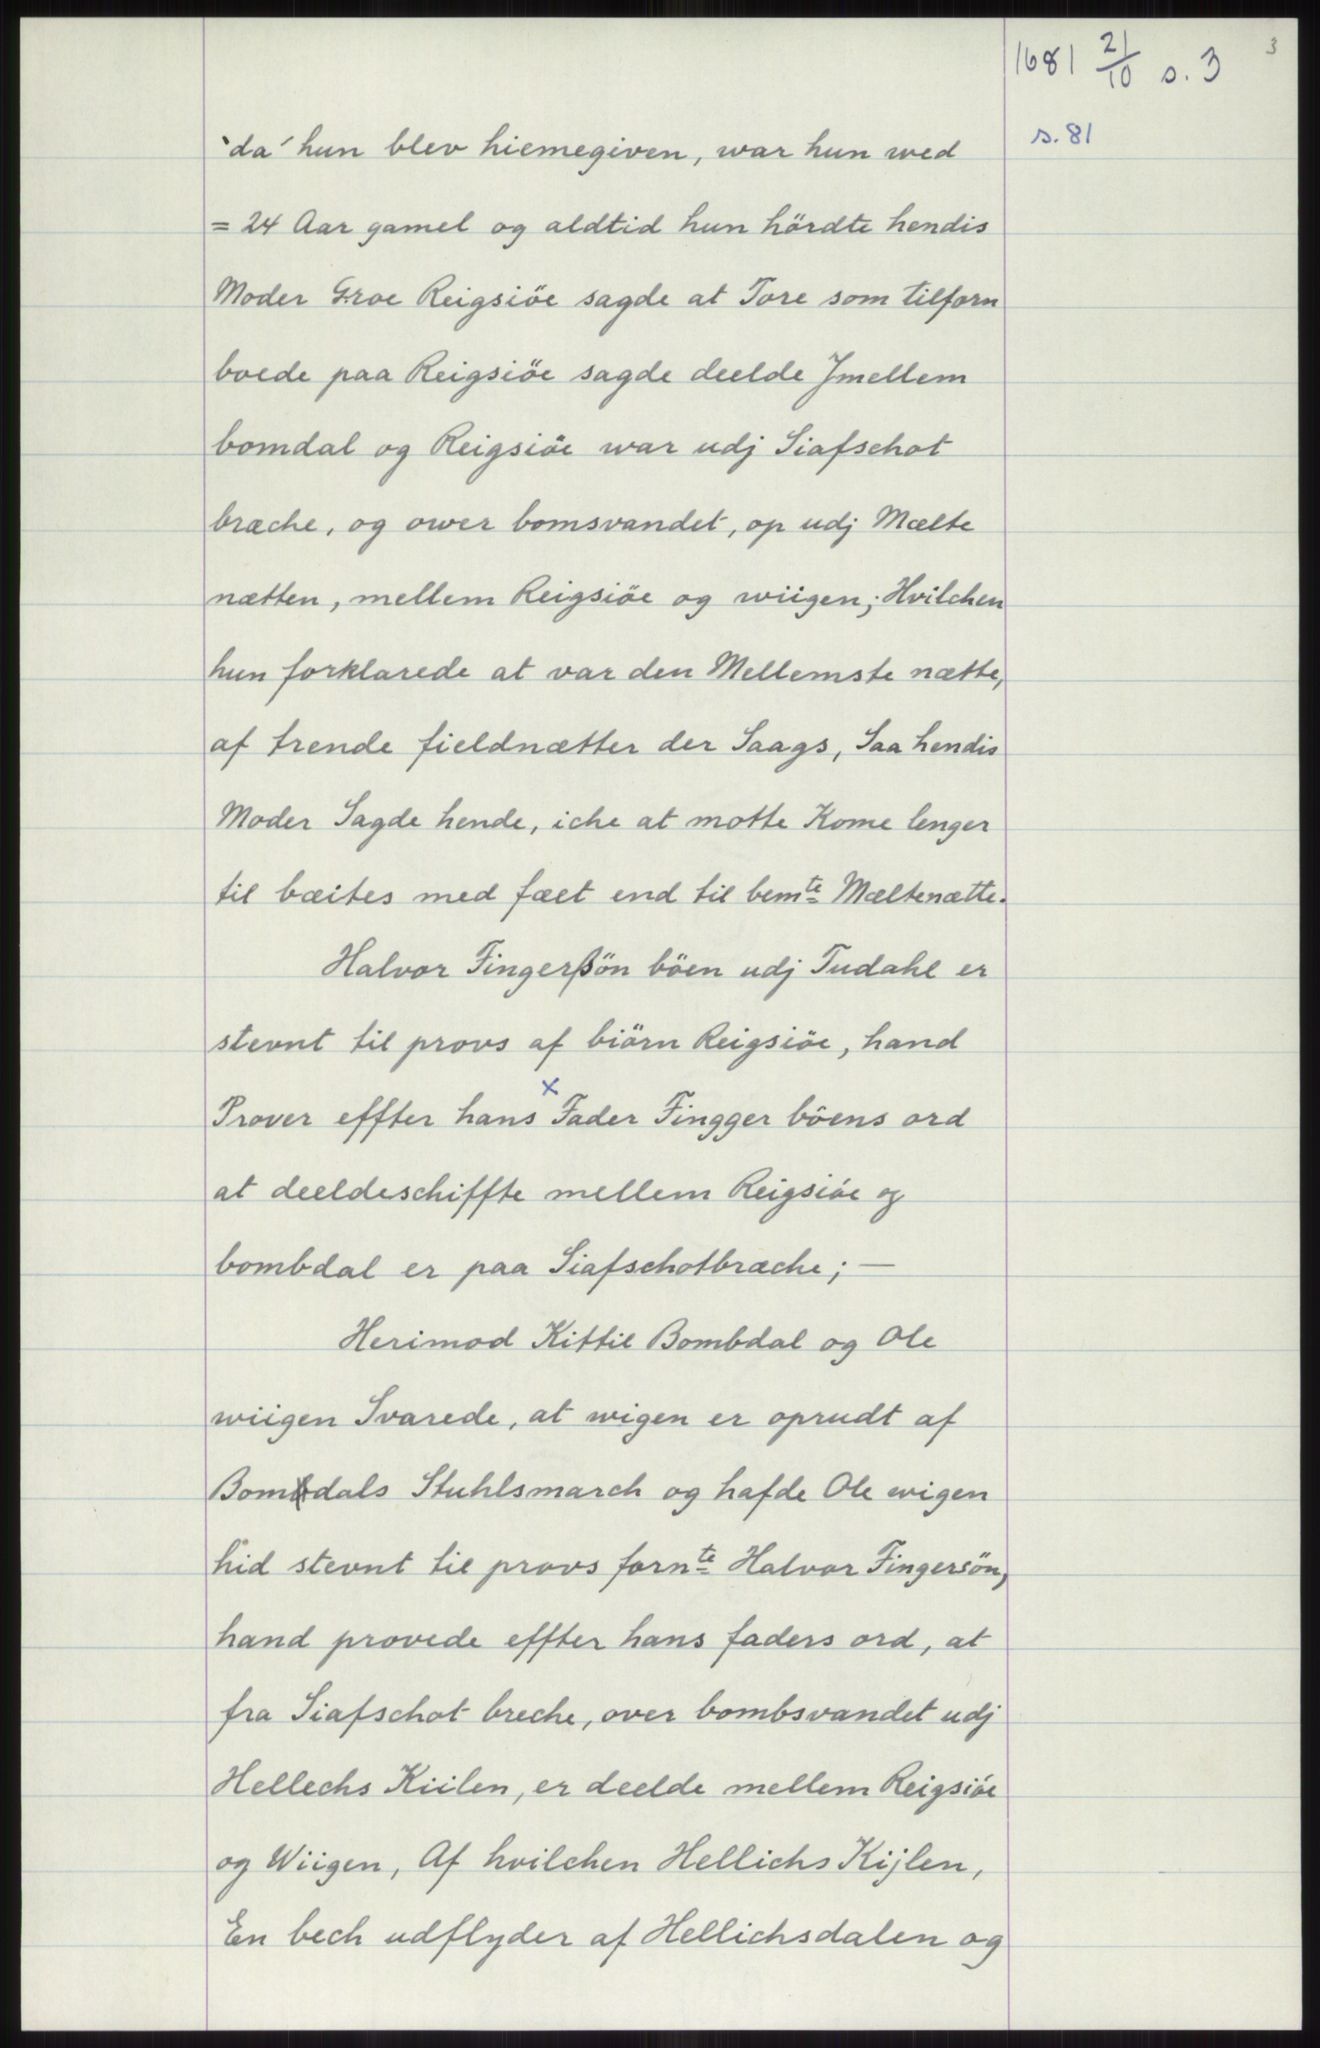 3
1681 21/10 s. 3
s. 81
`da´ hun blev hiemegiven, war hun wed
= 24 Aar gamel og aldtid hun hördte hendis
Moder Groe Reigsiöe sagde at Tore som tilforn
boede paa Reigsiöe sagde deelde Jmellem
bomdal og Reigsiöe war udj Siafschot
bræche, og ower bomsvandet, op udj Mælte
nætten, mellem Reigsiöe og wiigen; Hvilchen
hun forklarede at var den Mellemste nætte,
af trende fieldnætter der Saags, Saa hendis
Moder Sagde hende, iche at motte Kome lenger
til bæites med fæet end til bemte Mæltenætte.
Halvor Fingerßön böen udj Tudahl er
stevnt til provs af biörn Reigsiöe, hand
x
Prover effter hans Fader Fingger böens ord
at deeldeschiffte mellem Reigsiöe og
bombdal er paa Siafschotbræche; —
Herimod Kittil Bombdal og Ole
wiigen Svarede, at wigen er oprudt af
Bomdals Stuhlsmarch og hafde Ole wigen
hid stevnt til provs fornte Halvor Fingersön,
hand provede effter hans faders ord, at
fra Siafschot breche, over bombsvandet udj
Hellechs Kiilen, er deelde mellem Reigsiöe
og Wiigen, Af hvilchen Hellichs Kijlen,
En bech udflyder af Hellichsdalen og